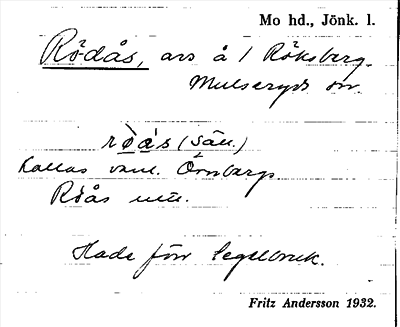 Mo hd., Jönk. l.
Rödås, avs å / Röksberg.
Mulseryds sn.
(sän.)
kallas vanl. Örnbergs
Röås
Hade förr tegelbruk.
Fritz Andersson 1932.